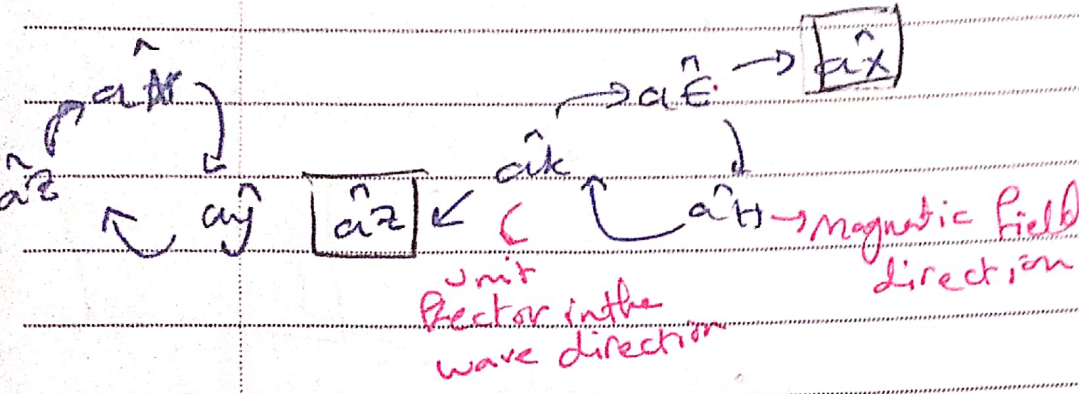 âx
âE → âx
âz
âk
ây
âz
âH → Magnetic field
direction
Unit
vector in the
wave direction